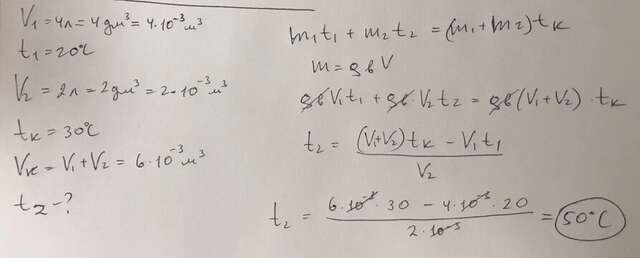 V₁ = 4л = 4дм³ = 4·10⁻³ м³
t₁ = 20°C
V₂ = 2л = 2дм³ = 2·10⁻³ м³
tк = 30°C
Vк = V₁ + V₂ = 6·10⁻³ м³
t₂ - ?
m₁t₁ + m₂t₂ = (m₁ + m₂)tк
m = ρв V
ρв·V₁t₁ + ρв·V₂t₂ = ρв(V₁+V₂)·tк
t₂ = (V₁+V₂)tк - V₁t₁ / V₂
t₂ = 6·10⁻³·30 - 4·10⁻³·20 / 2·10⁻³ = 50°C